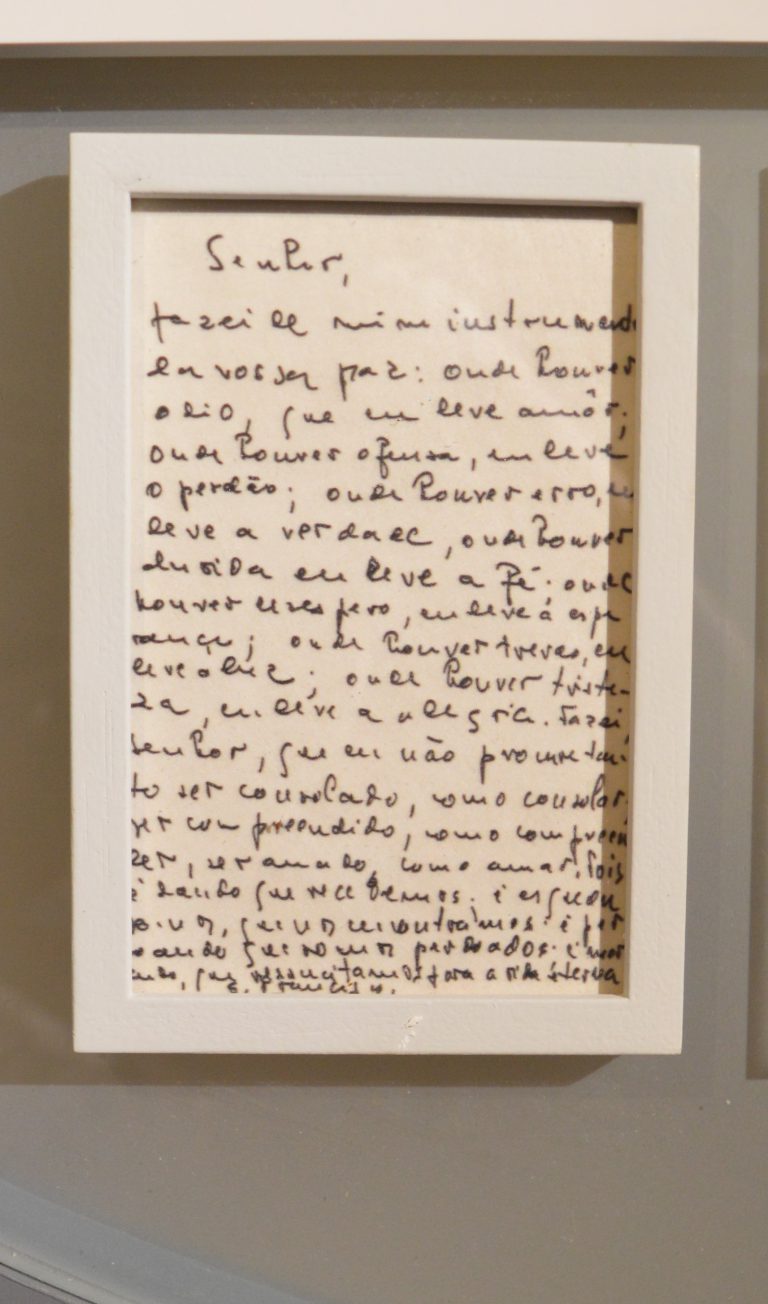 Senhor,
fazei de mim instrumento
da vossa paz: onde houver
odio, que eu leve amôr;
onde houver ofensa, eu leve
o perdão; onde houver erro, eu
leve a verdade, onde houver
duvida eu leve a Fé; onde
houver desespero, eu leve á espe
rança; onde houver trevas, eu
leve a luz; onde houver triste-
za, eu leve a alegria. Fazei,
Senhor, que eu não procure tan-
to ser consolado, como consolar;
ser compreendido, como compreen
der, ser amado, como amar. Pois
é dando que recebemos; é
que nos encontramos; é per
doando que somos perdoados; é mor
rendo, que ressuscitamos para a vida eterna
S. Francisco.